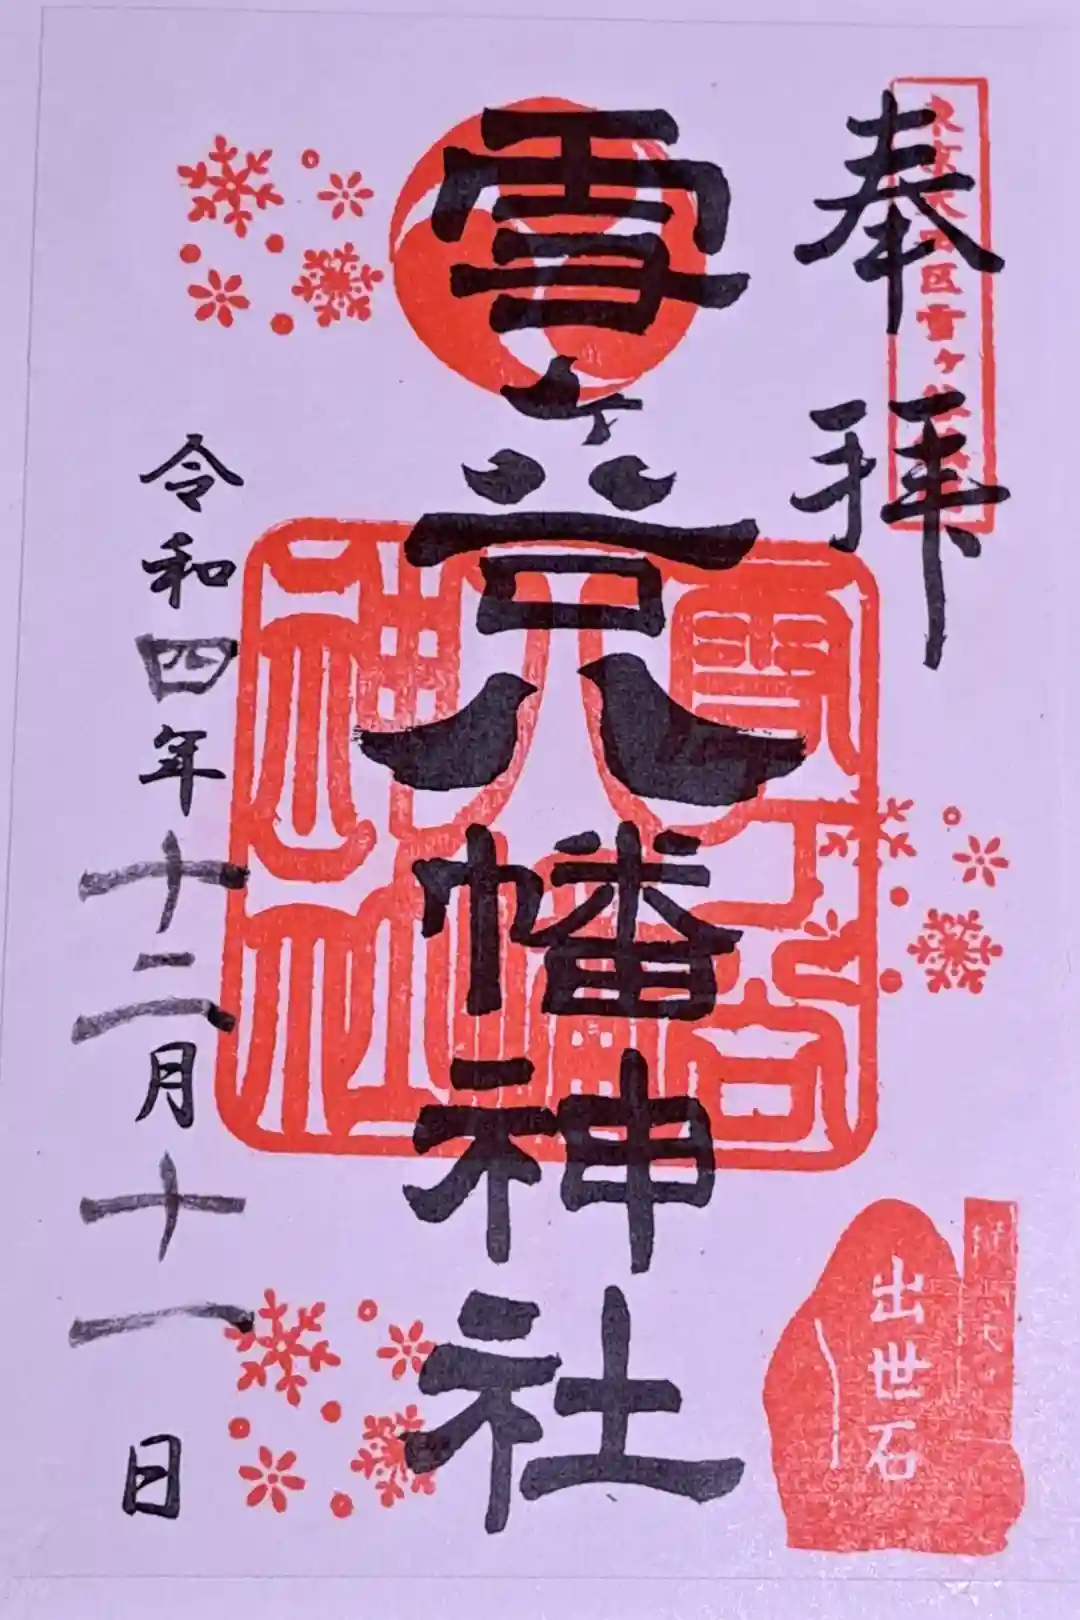 奉拝
東京大田区雪ヶ谷
雪ヶ谷八幡神社
雪ヶ谷八幡神社
令和四年十二月十一日
出世石